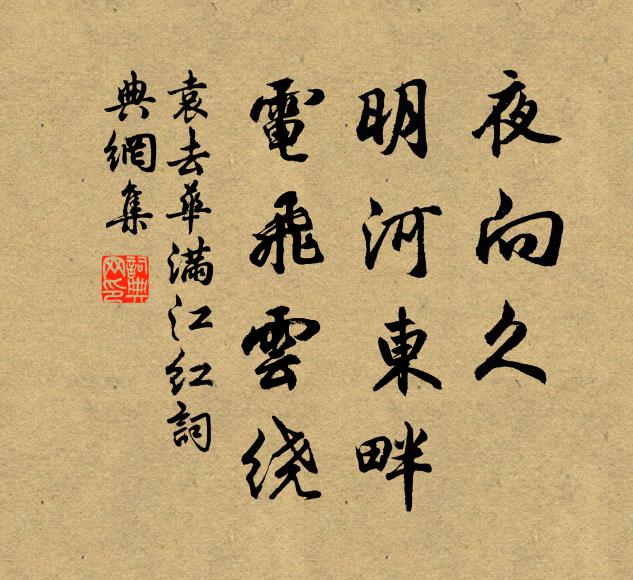 夜向久
明河東畔
電飛雲绕
袁去華满江红詞
典網集
詞典網印